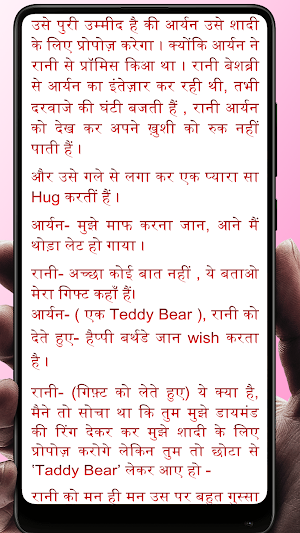 उसे पुरी उम्मीद है की आर्यन उसे शादी
के लिए प्रोपोज़ करेगा । क्योंकि आर्यन ने
रानी से प्रॉमिस किआ था । रानी बेशब्री
से आर्यन का इंतेज़ार कर रही थी, तभी
दरवाजे की घंटी बजती हैं , रानी आर्यन
को देख कर अपने ख़ुशी को रुक नहीं
पाती हैं ।
और उसे गले से लगा कर एक प्यारा सा
Hug करतीं हैं ।
आर्यन- मुझे माफ करना जान, आने मैं
थोड़ा लेट हो गाया ।
रानी- अच्छा कोई बात नहीं , ये बताओ
मेरा गिफ्ट कहाँ हैं।
आर्यन- ( एक Teddy Bear ), रानी को
देते हुए- हैप्पी बर्थडे जान wish करता
है ।
रानी- (गिफ़्ट को लेते हुए) ये क्या है,
मैने तो सोचा था कि तुम मुझे डायमंड
की रिंग देकर कर मुझे शादी के लिए
प्रोपोज़ करोगे लेकिन तुम तो छोटा से
'Taddy Bear' लेकर आए हो -
रानी को मन ही मन उस पर बहुत गुस्सा